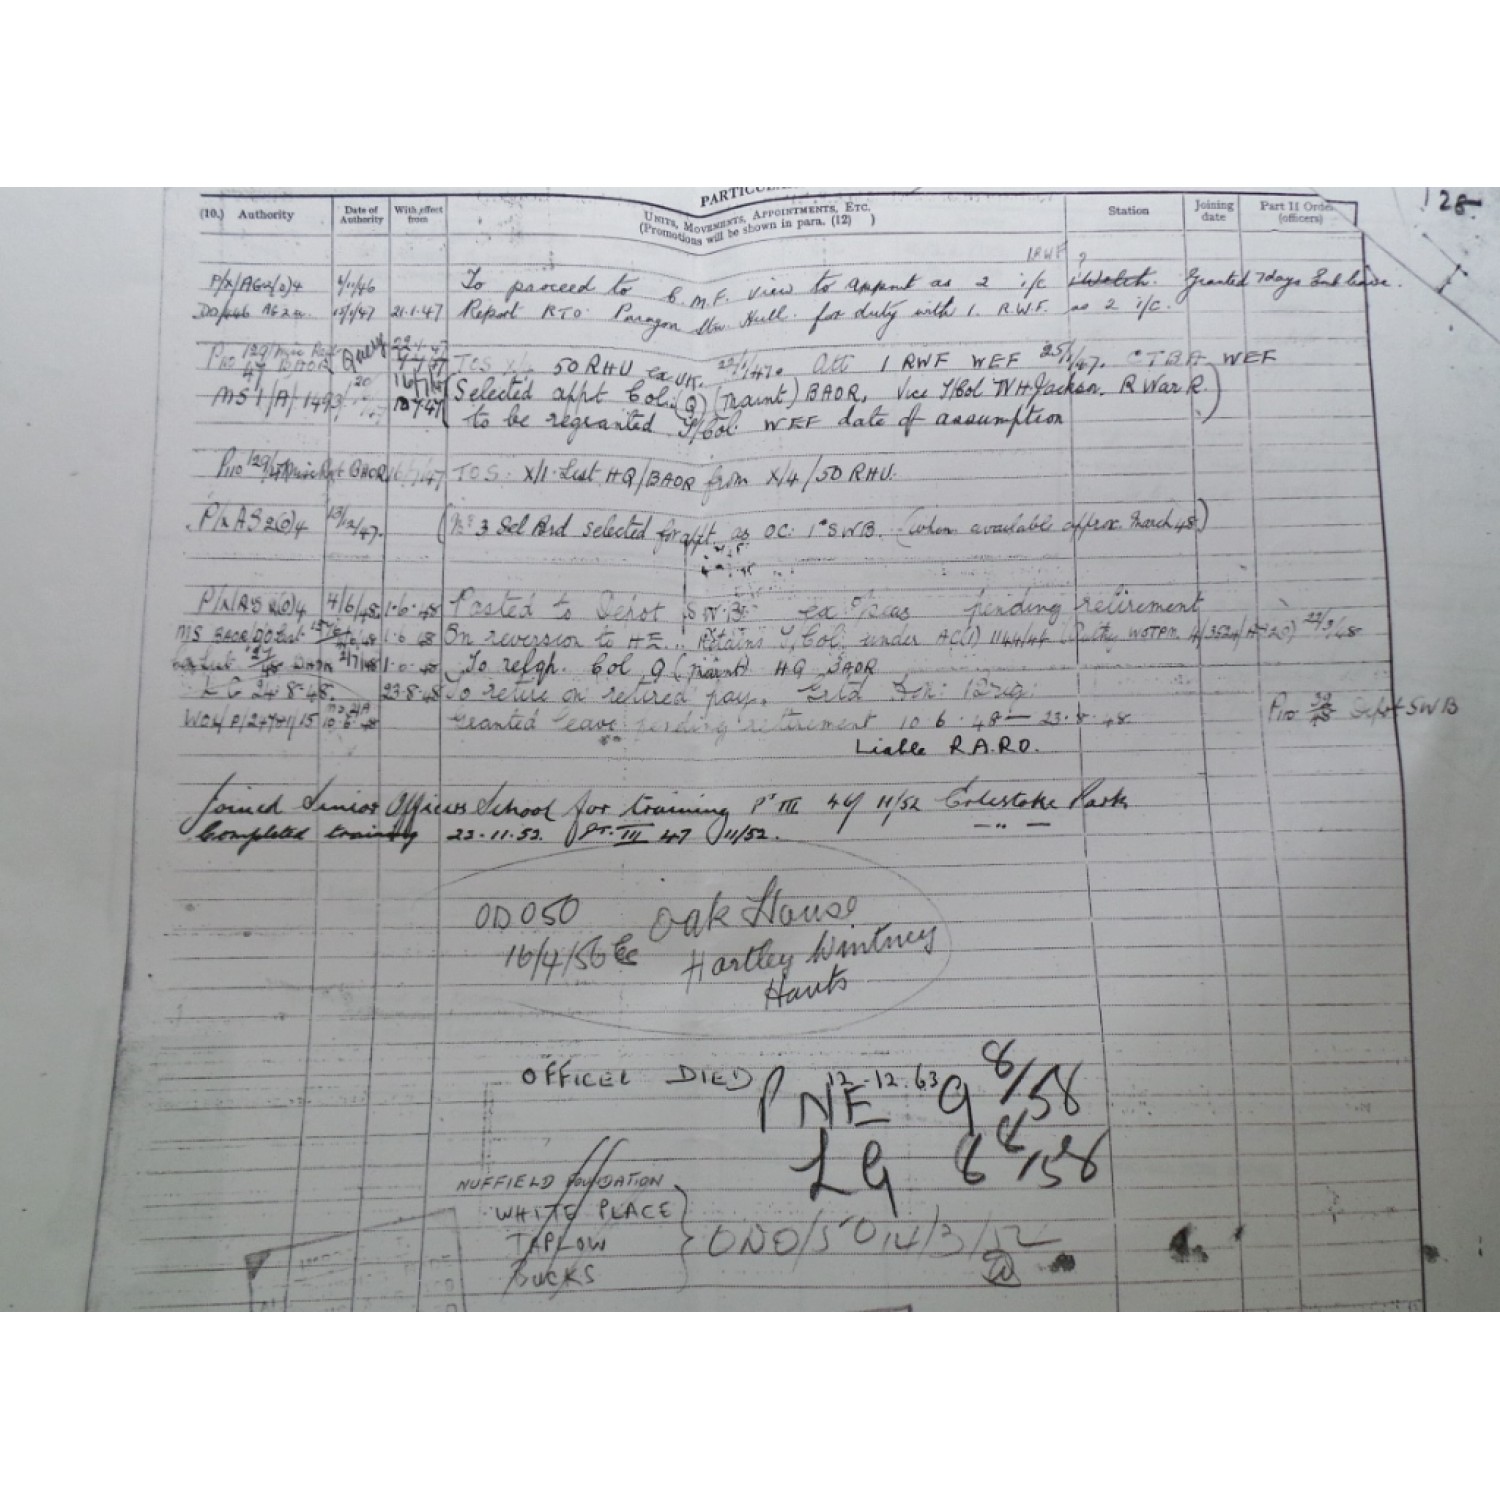 128
PARTICU
(10.) Authority Date of Authority With effect from UNITS, MOVEMENTS, APPOINTMENTS, ETC. (Promotions will be shown in para. (12) ) Station Joining date Part II Orde (officers)
1RWF ?
P/X/AG2(0)4 4/11/46 To proceed to C.M.F. view to appmt as 2 i/c Granted 7days Emb leave.
AG2 21.1.47 Report RTO. Paragon Stn. Hull. for duty with 1. R.W.F. as 2 i/c.
P110 129/47 BAOR Query TOS 50 RHU ex UK. 22/1/47. Att 1 RWF WEF 25/1/47. CTBA WEF
MS1/A/1493 (Selected appt Col. (Q) (Maint) BAOR, Vice T/Col WH Jackson. R War R.)
to be regranted T/Col. WEF date of assumption
P110 129/47 BAOR 16/7/47 TOS. X/1 List HQ/BAOR from X/4/50 RHU.
P/X AS2(0)4 13/12/47. (No 3 Sel Brd selected for appt. as O.C. 1st SWB. (when available approx. March 48)
P/X/AS2(0)4 4/6/48 1.6.48 Posted to Depot S.W.B. ex O/seas pending retirement
MS BAOR 1.6.48 On reversion to HE.. Retains T/Col. under AC(1) 1144/46 22/9/48
2/7/48 To relqn. Col Q (Maint) HQ BAOR
LG 24.8.48. 23.8.48 To retire on retired pay. Grtd Hon: Brig:
10.6.48 Granted leave pending retirement 10.6.48 — 23.8.48. P110 Depot SWB
Liable R.A.R.O.
Joined Senior Officers School for training Pt III 46/11/52 Erlestoke Park
Completed training 22.11.52. Pt. III 47 11/52. — " —
ODO50 Oak House
16/4/56 Hartley Wintney
Hants
OFFICER DIED 12.12.63
PNE 9 8/58
LG 8 8/58
NUFFIELD FOUNDATION
WHITE PLACE
TAPLOW ODO/50 14/3/52
BUCKS